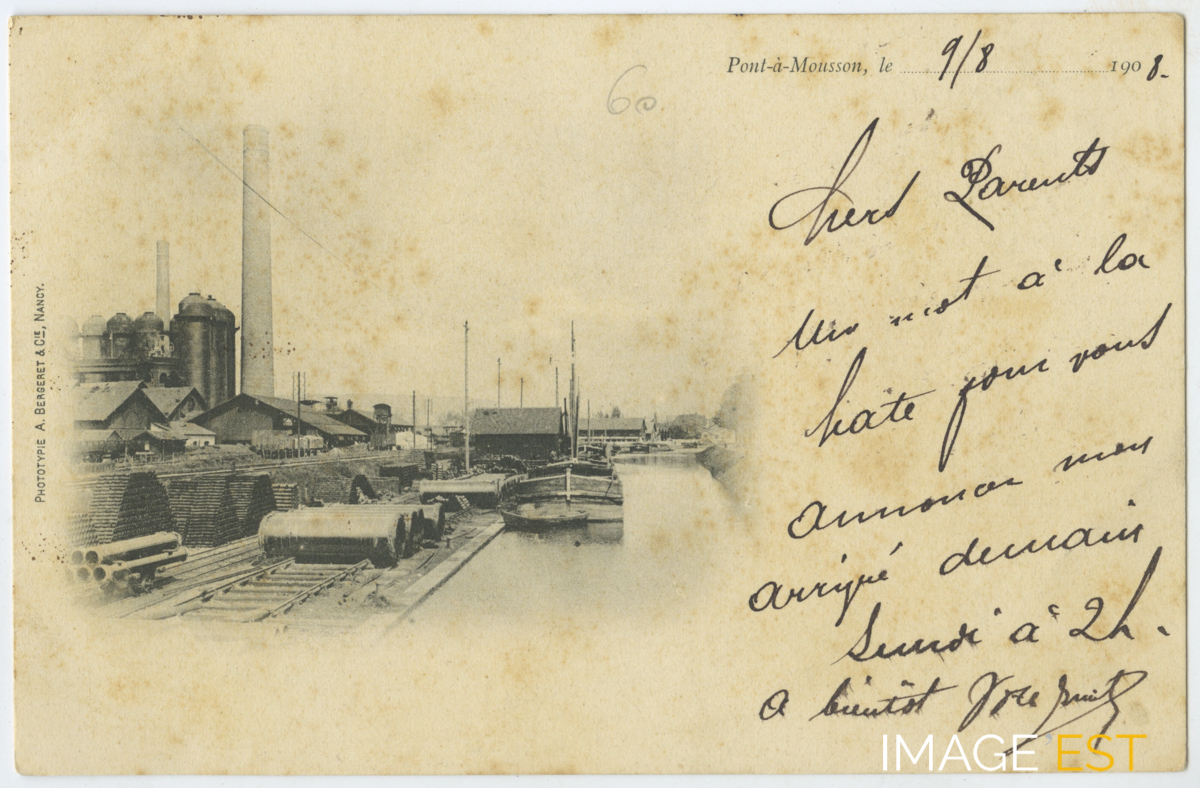 Pont-à-Mousson, le 9/8 1908.
60
Chers Parents
Un mot à la
hate pour vous
annoncer mon
arrivé demain
Lundi à 2h.
a bientôt Vtre
PHOTOTYPIE A. BERGERET & CIE, NANCY.
IMAGE EST